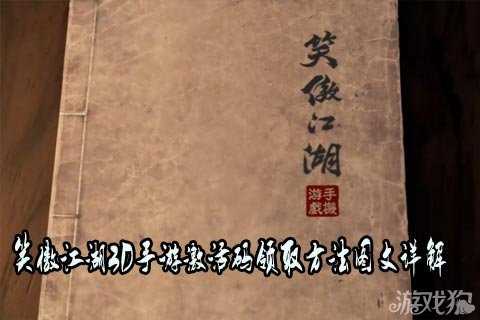 笑傲江湖
手機
游戲
笑傲江湖3D手游激活码领取方法图文详解
游戏狗